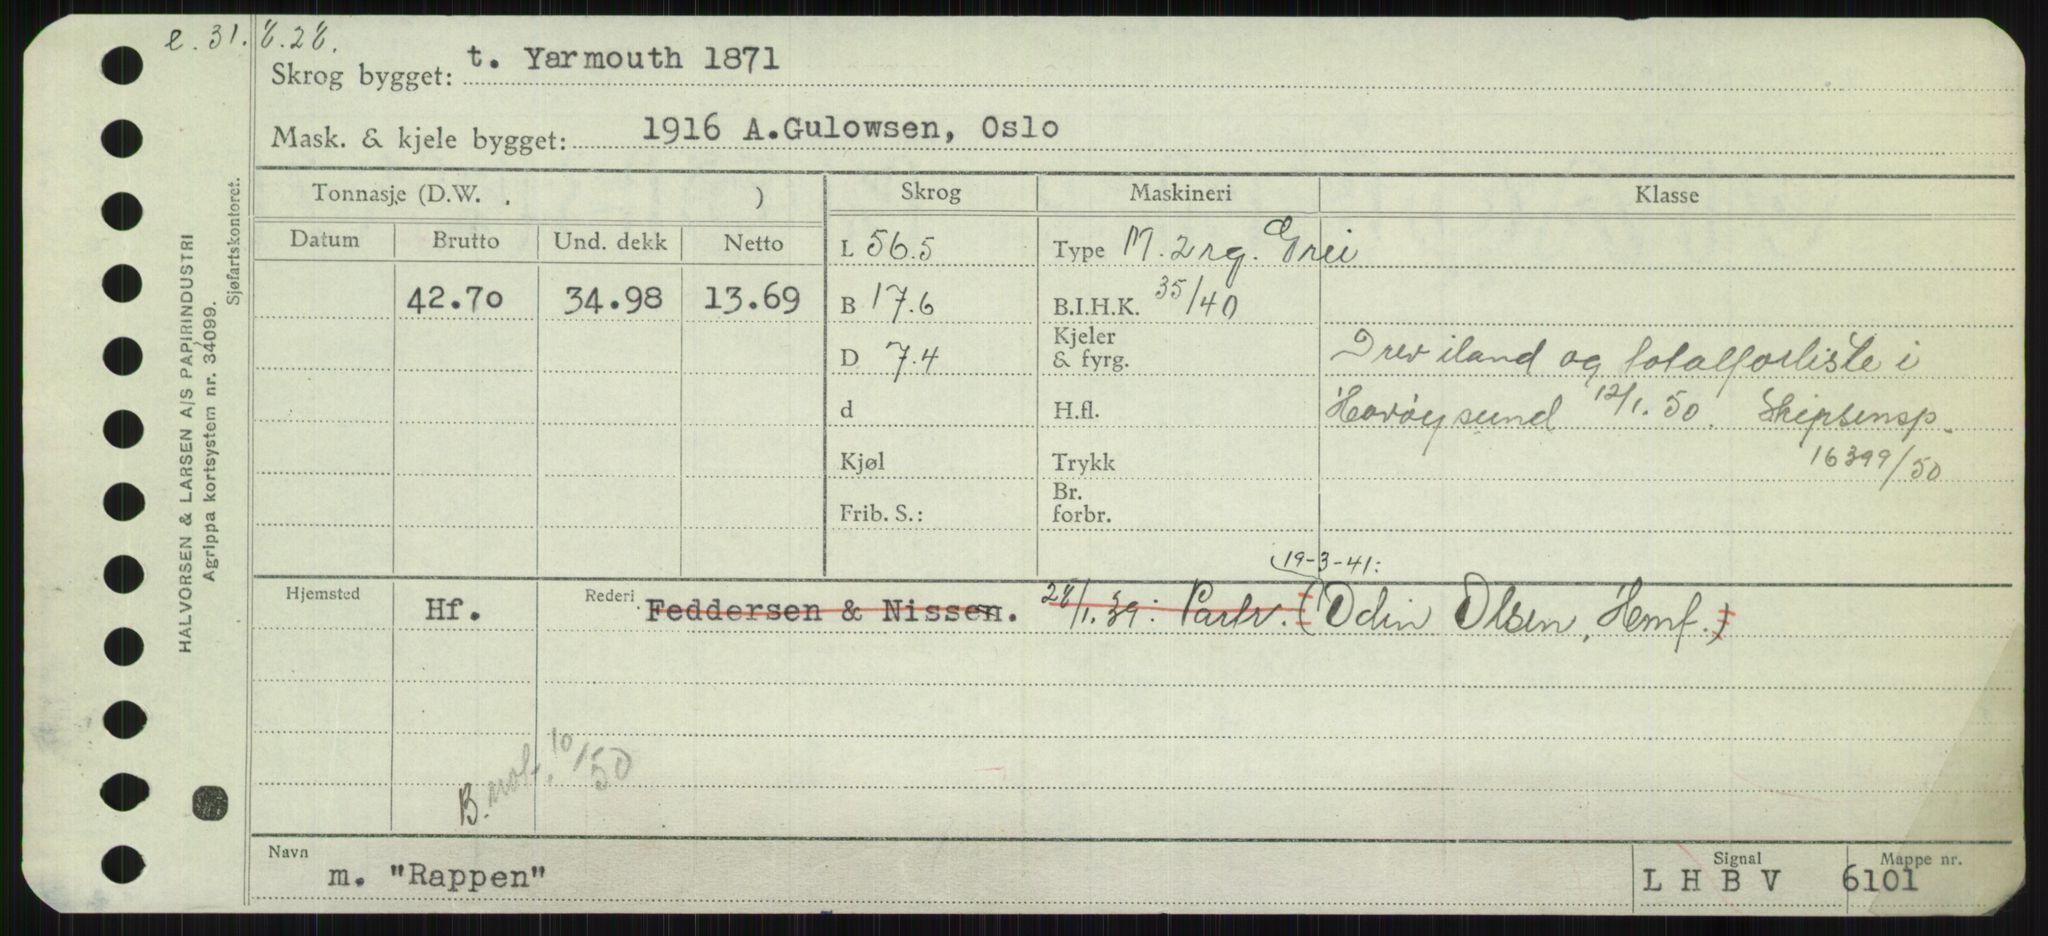 e. 31.8.28.
Skrog bygget: t. Yarmouth 1871
Mask. & kjele bygget: 1916 A.Gulowsen, Oslo
Tonnasje (D.W. . ) Skrog Maskineri Klasse
Datum Brutto Und. dekk Netto L 56.5 Type M. 2 rg. Grei
42.70 34.98 13.69 B 17.6 B.I.H.K. 35/40
D 7.4 Kjeler & fyrg. Drev iland og totalforliste i
d H.fl. Havøysund 12/1.50. Skipsinsp.
Kjøl Trykk 16399/50
Frib. S.: Br. forbr.
19-3-41:
Hjemsted Hf. Rederi Feddersen & Nissen. 28/1.39: Partr. (Odin Olsen, Hmf.)
B. not. 10/50
Navn m. "Rappen" Signal L H B V Mappe nr. 6101
HALVORSEN & LARSEN A/S PAPIRINDUSTRI
Agrippa kortsystem nr. 34099.
Sjøfartskontoret.